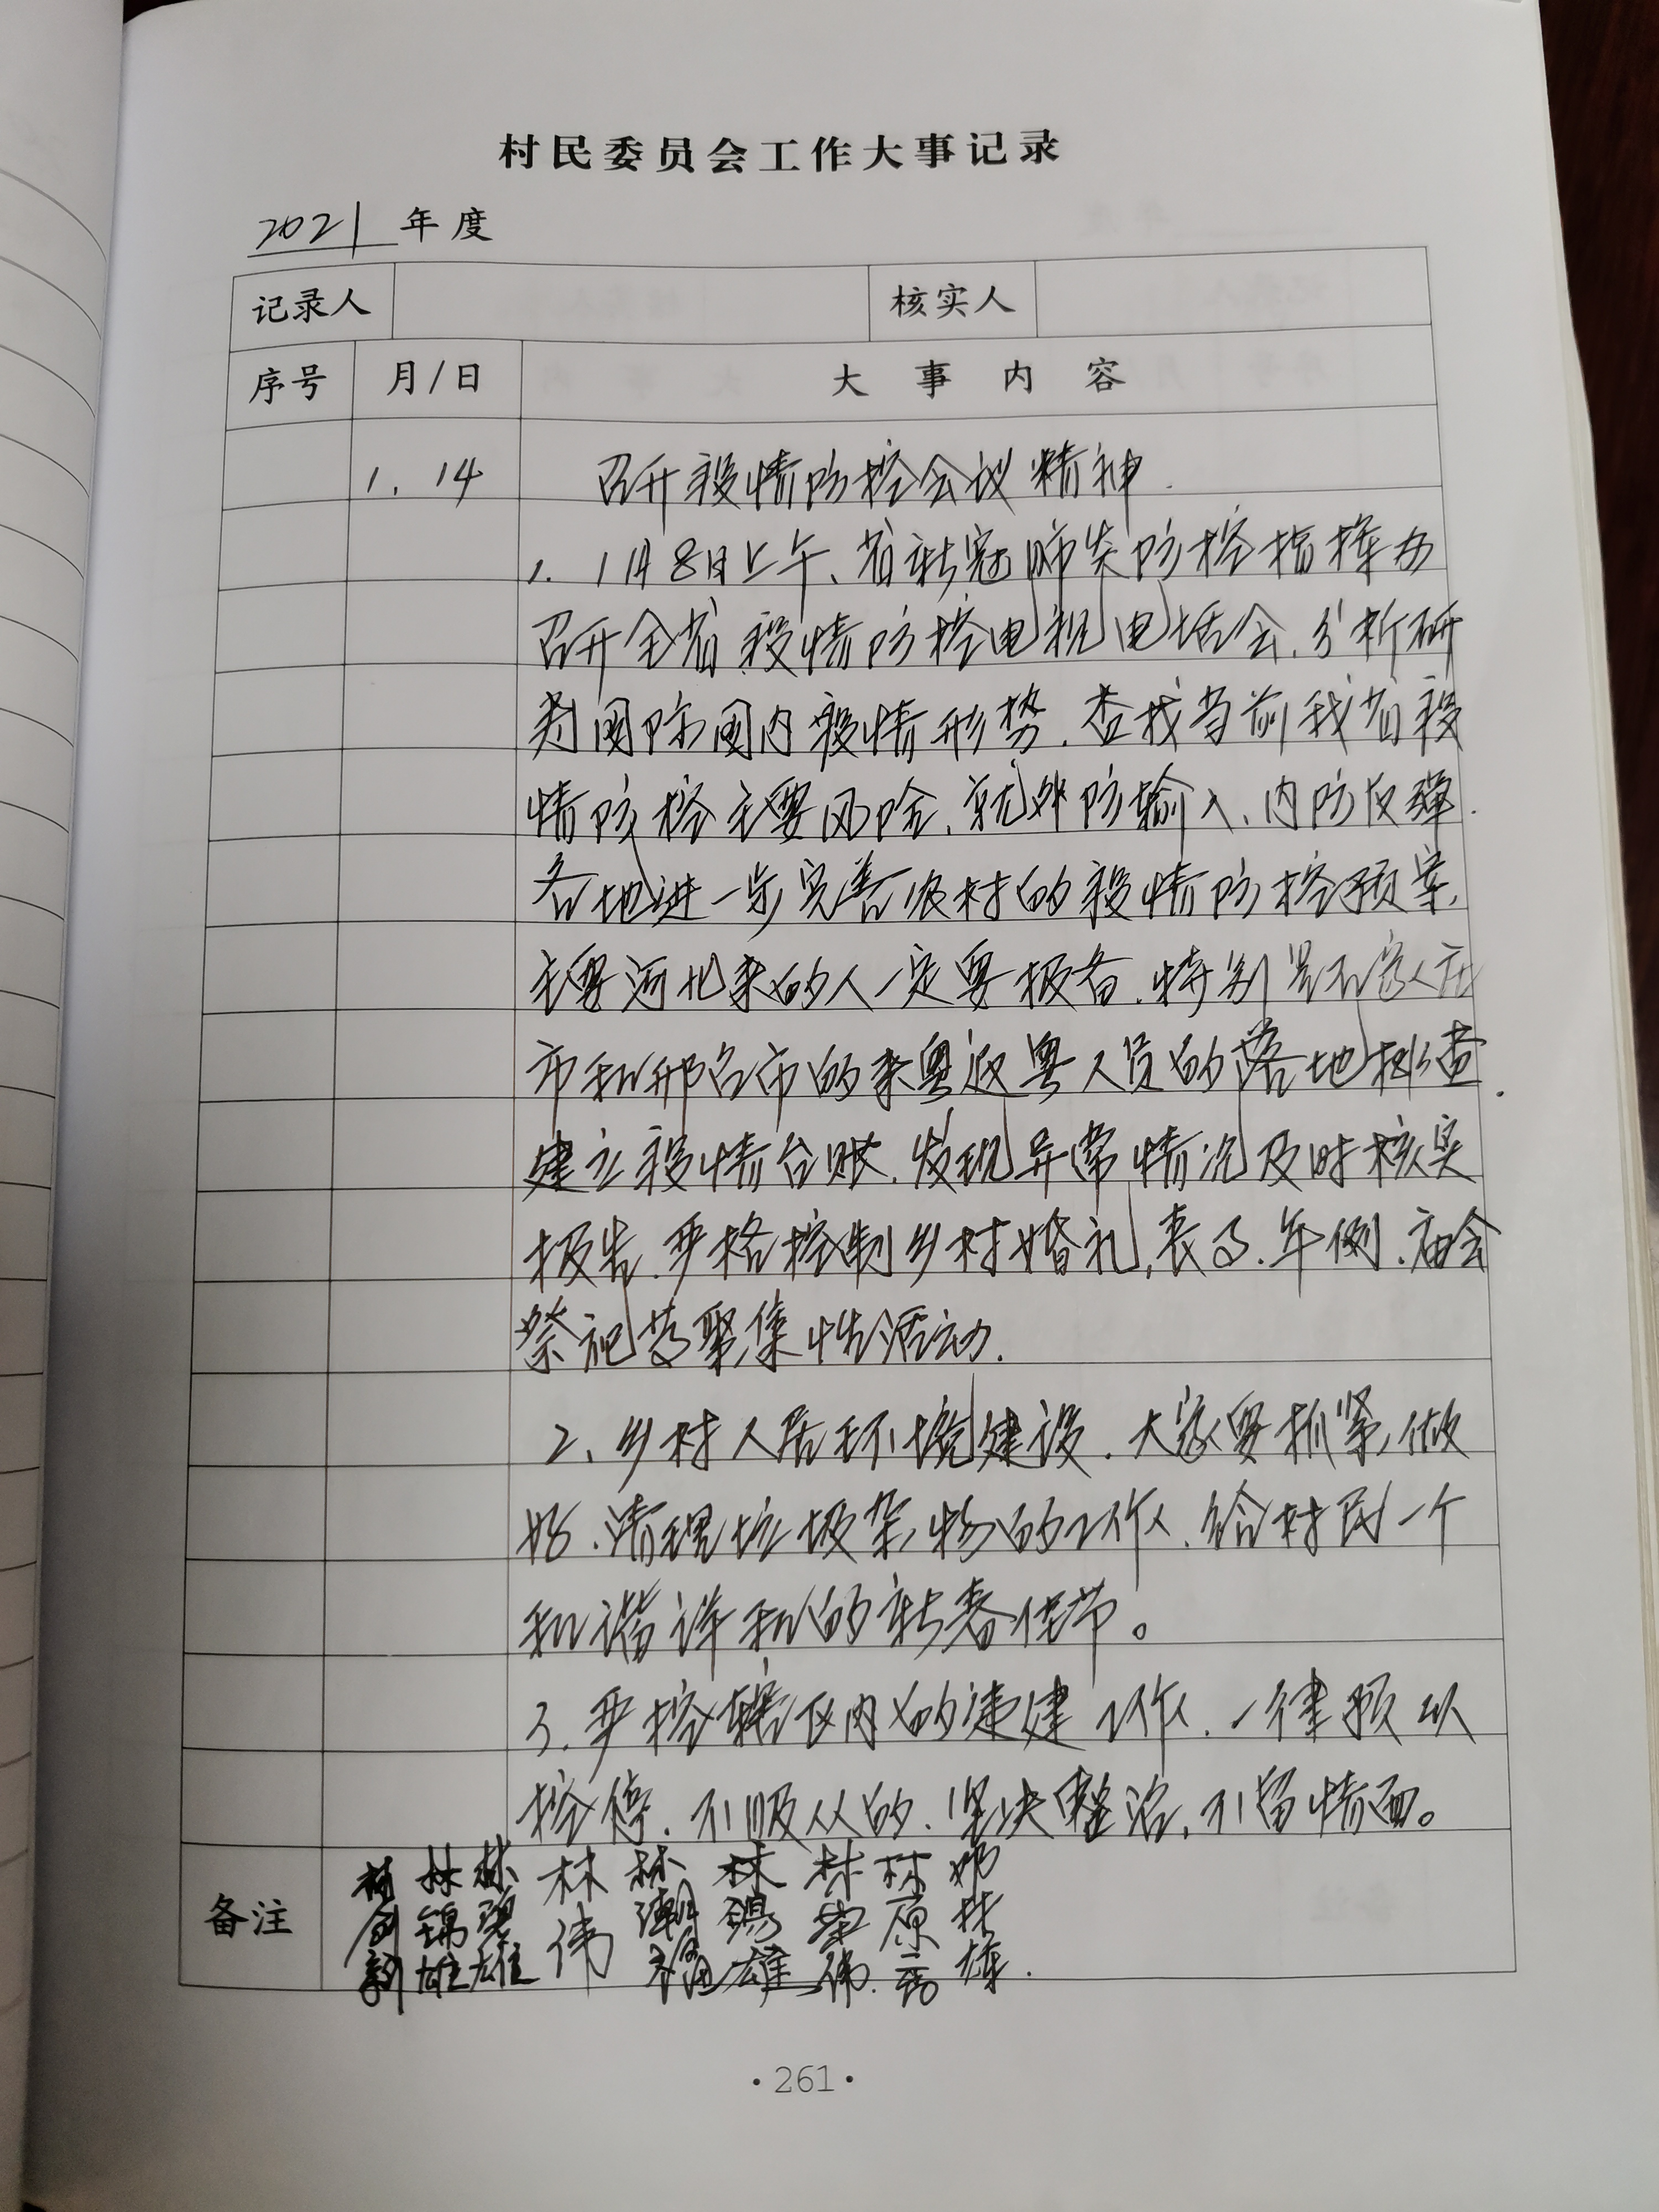 村民委员会工作大事记录
2021 年度
记录人 核实人
序号 月/日 大事内容
1.14 召开疫情防控会议精神.
1. 1月8日上午、省新冠肺炎防控指挥办
召开全省疫情防控电视电话会.分析研
判国际国内疫情形势.查找当前我省疫
情防控主要风险.就外防输入、内防反弹.
各地进一步完善农村的疫情防控预案,
主要河北来的人一定要报备.特别是石家庄
市和邢台市的来粤返粤人员的落地排查.
建立疫情台账.发现异常情况及时核实
报告.严格控制乡村婚礼,丧事.年例.庙会
祭祀等聚集性活动.
2、乡村人居环境建设.大家要抓紧,做
好.清理垃圾杂物的工作.给村民一个
和谐详和的新春佳节。
3.严控辖区内的违建工作.一律预以
控停.不顺从的.坚决整治,不留情面。
备注 林锦雄 林伟 林潮福 林锡雄 林荣伟.
·261·